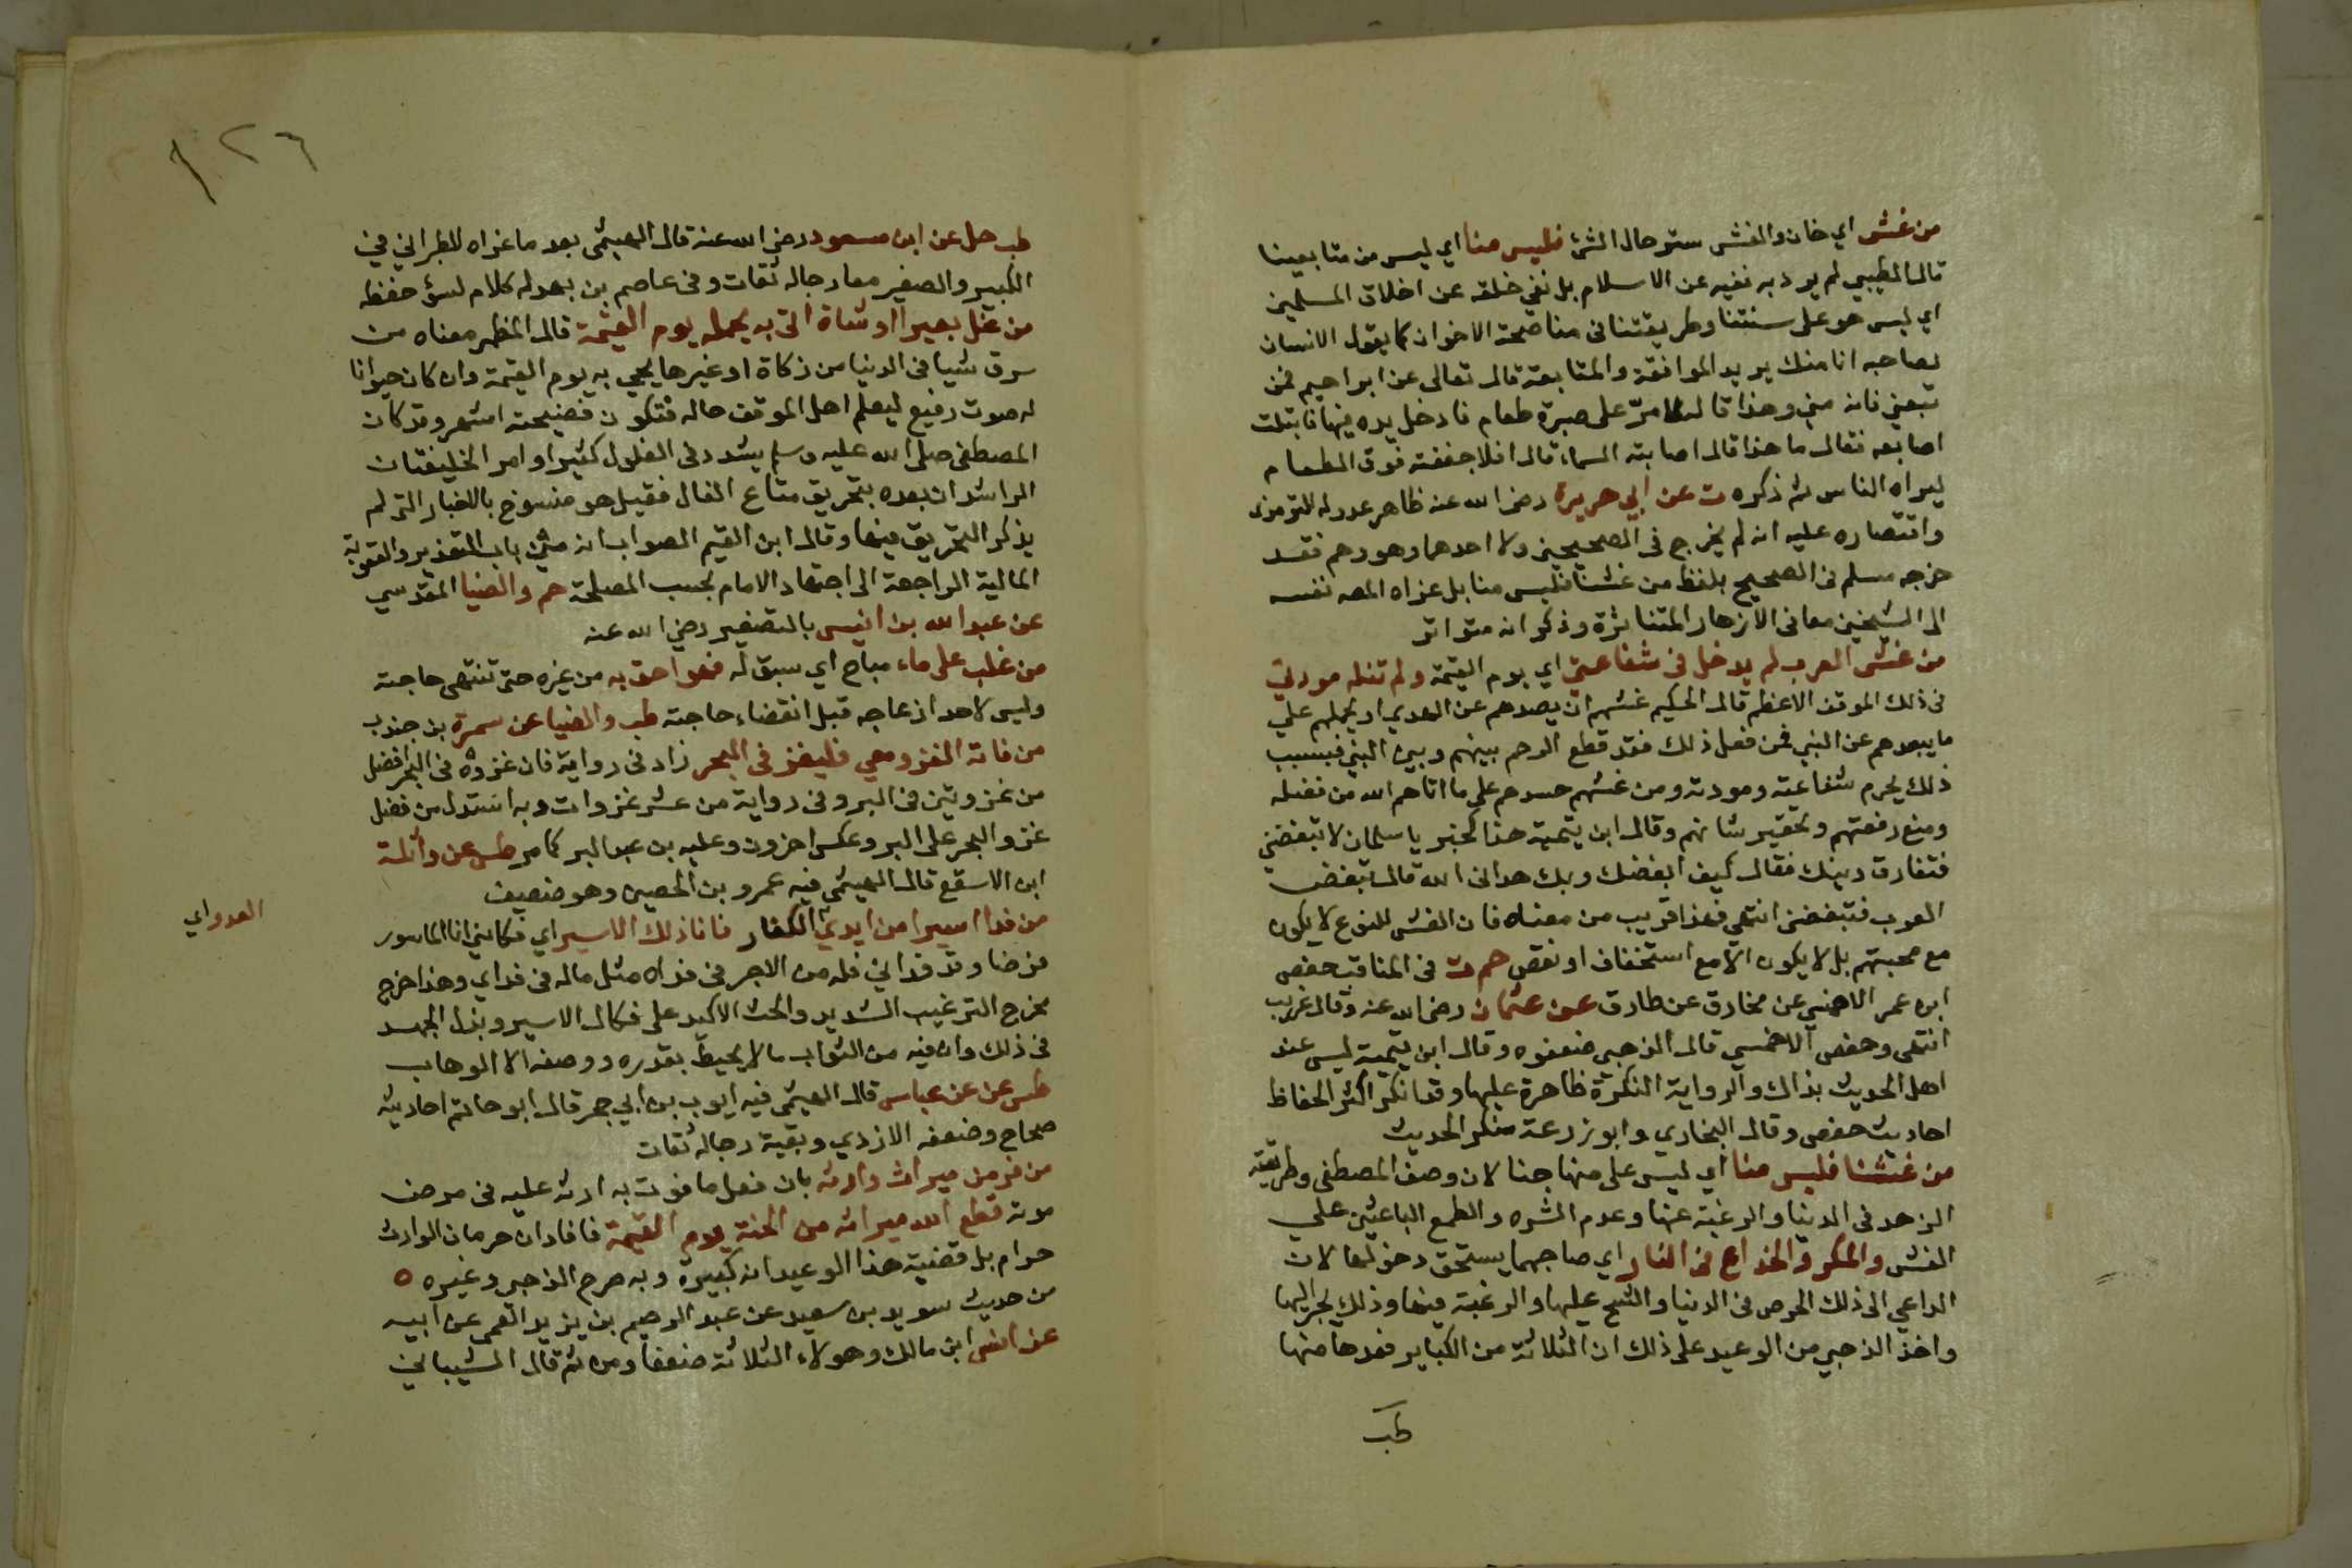 من غش اي خان والغش ستر حال الشئ فليس منا اي ليس من متابعينا
قال الطيبي لم يرد به نفيه عن الاسلام بل نفي خلقه عن اخلاق المسلمين
اي ليس هو على سنتنا وطريقتنا فى مناصحة الاخوان كما يقول الانسان
لصاحبه انا منك يريد الموافقة والمتابعة قال تعالى عن ابراهيم فمن
تبعني فانه مني وهذا قاله لما مرّ على صبرة طعام فادخل يده فيها فابتلت
اصابعه فقال ما هذا قال اصابته السماء قال افلا جعلته فوق الطعام
ليراه الناس ثم ذكره ت عن ابي هريرة رضى الله عنه ظاهر عدوله للترمذى
واقتصاره عليه انه لم يخرج فى الصحيحين ولا احدهما وهو وهم فقد
خرجه مسلم فى الصحيح بلفظ من غشنا فليس منا بل عزاه المصه نفسه
الى الشيخين معا فى الازهار المتناثرة وذكر انه متواتر
من غش العرب لم يدخل فى شفاعتي اي يوم القيمة ولم تنله مودتي
فى ذلك الموقف الاعظم قال الحكيم غشهم ان يصدهم عن الهدى او يحملهم على
ما يبعدهم عن النبي فمن فعل ذلك فقد قطع الرحم بينهم وبين النبي فبسبب
ذلك يحرم شفاعته ومودته ومن غشهم حسدهم على ما اتاهم الله من فضله
ومنع رفعتهم وتحقير شانهم وقال ابن تيمية هذا كخبر يا سلمان لا تبغضني
فتفارق دينك فقال كيف ابغضك وبك هدانى الله قال تبغض
العرب فتبغضني انتهى فهذا قريب من معناه فان الغش للنوع لا يكون
مع محبتهم بل لا يكون الا مع استخفاف او نقص حم ت فى المناقب حفص
ابن عمر الاحمسي عن مخارق عن طارق عن عثمان رضى الله عنه وقال غريب
انتهى وحفص الاحمسي قال الذهبي ضعفوه وقال ابن تيمية ليس عند
اهل الحديث بذاك والرواية المنكرة ظاهرة عليها وقد انكر اكثر الحفاظ
احاديث حفص وقال البخاري وابو زرعة منكر الحديث
من غشنا فليس منا اي ليس على منهاجنا لان وصف المصطفى وطريقته
الزهد فى الدنيا والرغبة عنها وعدم الشره والطمع الباعثين على
الغش والمكر والخداع فى النار اي صاحبهما يستحق دخولها لان
الداعي الى ذلك الحرص فى الدنيا والشح عليها والرغبة فيها وذلك يجر اليها
واخذ الذهبي من الوعيد على ذلك ان الثلاثة من الكبائر فعدها منها
طب
١٢٦
طب حل عن ابن مسعود رضى الله عنه قال الهيثمى بعد ما عزاه للطبراني في
الكبير والصغير معا رجاله ثقات وفى عاصم بن بهدله كلام لسؤ حفظه
من غل بعيرا او شاة اتى به يحمله يوم القيمة قال المظهر معناه من
سرق شيا فى الدنيا من زكاة او غيرها يجي به يوم القيمة وان كان حيوانا
له صوت رفيع ليعلم اهل الموقف حاله فتكون فضيحته اشهر وقد كان
المصطفى صلى الله عليه وسلم يشدد فى الغلول كثيرا وامر الخليفتان
الراشدان بعده بتحريق متاع الغال فقيل هو منسوخ بالاخبار التى لم
يذكر التحريق فيها وقال ابن القيم الصواب انه من باب التعذير والعقوبة
المالية الراجعة الى اجتهاد الامام بحسب المصلحة حم والضيا المقدسي
عن عبد الله بن انيس بالتصغير رضي الله عنه
من غلب على ماء مباح اي سبق له فهو احق به من غيره حتى تنتهى حاجته
وليس لاحد ازعاجه قبل انقضاء حاجته طب والضيا عن سمرة بن جندب
من فاته الغزو معي فليغز فى البحر زاد فى رواية فان غزوة فى البحر افضل
من غزوتين فى البر وفى رواية من عشر غزوات وبه استدل من فضل
غزو البحر على البر وعكس اخرون وعليه بن عبد البر كما مر طس عن واثلة
ابن الاسقع قال الهيثمى فيه عمرو بن الحصين وهو ضعيف
من فدا اسيرا من ايدي الكفار فانا ذلك الاسير اي فكانني انا الماسور
العدو اي
فرضا وقد فداني فله من الاجر فى فداه مثل ماله فى فداي وهذا خرج
مخرج الترغيب الشديد والحث الاكيد على فكاك الاسير وبذل الجهد
فى ذلك وان فيه من الثواب ما لا يحيط بقدره ووصفه الا الوهاب
طس عن عن عباس قال الهيثمى فيه ايوب بن ابي حجر قال ابو حاتم احاديثه
صحاح وضعفه الازدي وبقية رجاله ثقات
من فر من ميراث وارثه بان فعل ما فوت به ارثه عليه فى مرض
موته قطع الله ميراثه من الجنة يوم القيمة فافاد ان حرمان الوارث
حرام بل قضية هذا الوعيد انه كبيرة وبه صرح الذهبى وغيره ه
من حديث سويد بن سعيد عن عبد الرحيم بن يزيد العمى عن ابيه
عن انس ابن مالك وهولاء الثلاثة ضعفا ومن ثم قال الشيباني